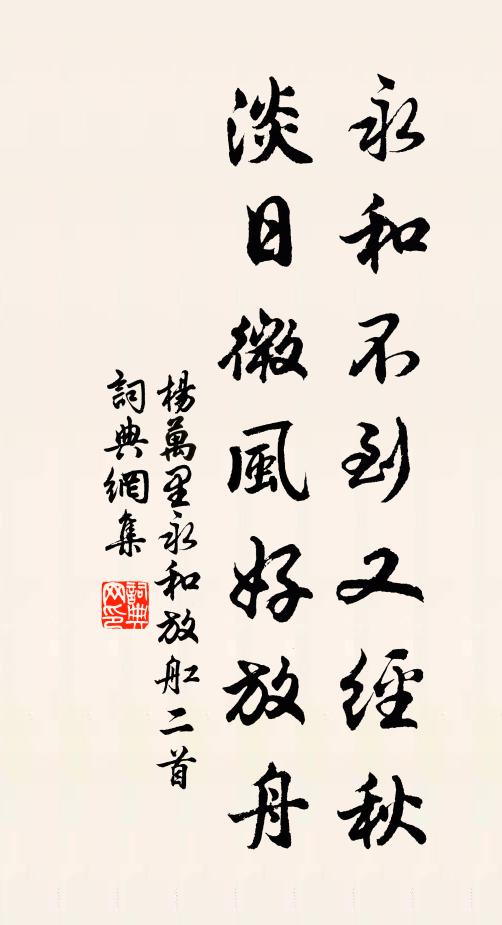 永和不到又經秋
淡日微風好放舟
楊萬里永和放舡二首
詞典網集
詞典
网印